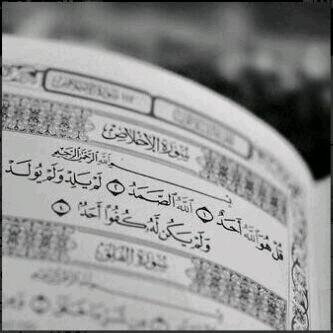 سُورَةُ الإِخْلَاصِ
بِسْمِ اللَّهِ الرَّحْمَٰنِ الرَّحِيمِ
قُلْ هُوَ اللَّهُ أَحَدٌ ١ اللَّهُ الصَّمَدُ ٢ لَمْ يَلِدْ وَلَمْ يُولَدْ
وَلَمْ يَكُن لَّهُ كُفُوًا أَحَدٌ ٤
سُورَةُ الفَلَقِ